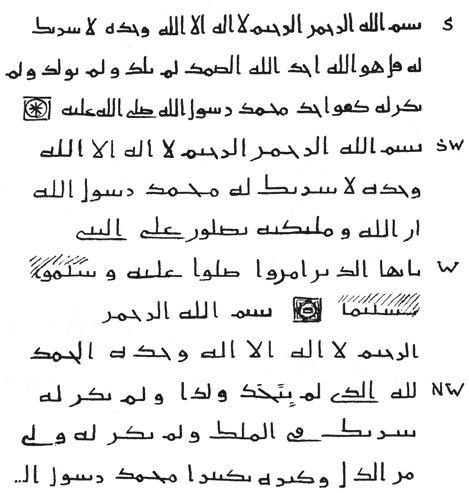 S بسم الله الرحمن الرحيم لا اله الا الله وحده لا شريك
له قل هو الله احد الله الصمد لم يلد ولم يولد ولم
يكن له كفوا احد محمد رسول الله صلى الله عليه
SW بسم الله الرحمن الرحيم لا اله الا الله
وحده لا شريك له محمد رسول الله
ان الله و ملئكته يصلون على النبي
W يايها الذين امنوا صلوا عليه و سلموا
تسليما بسم الله الرحمن
الرحيم لا اله الا الله وحده الحمد
NW لله الذي لم يتخذ ولدا ولم يكن له
شريك في الملك ولم يكن له ولي
من الذل وكبره تكبيرا محمد رسول الـ..